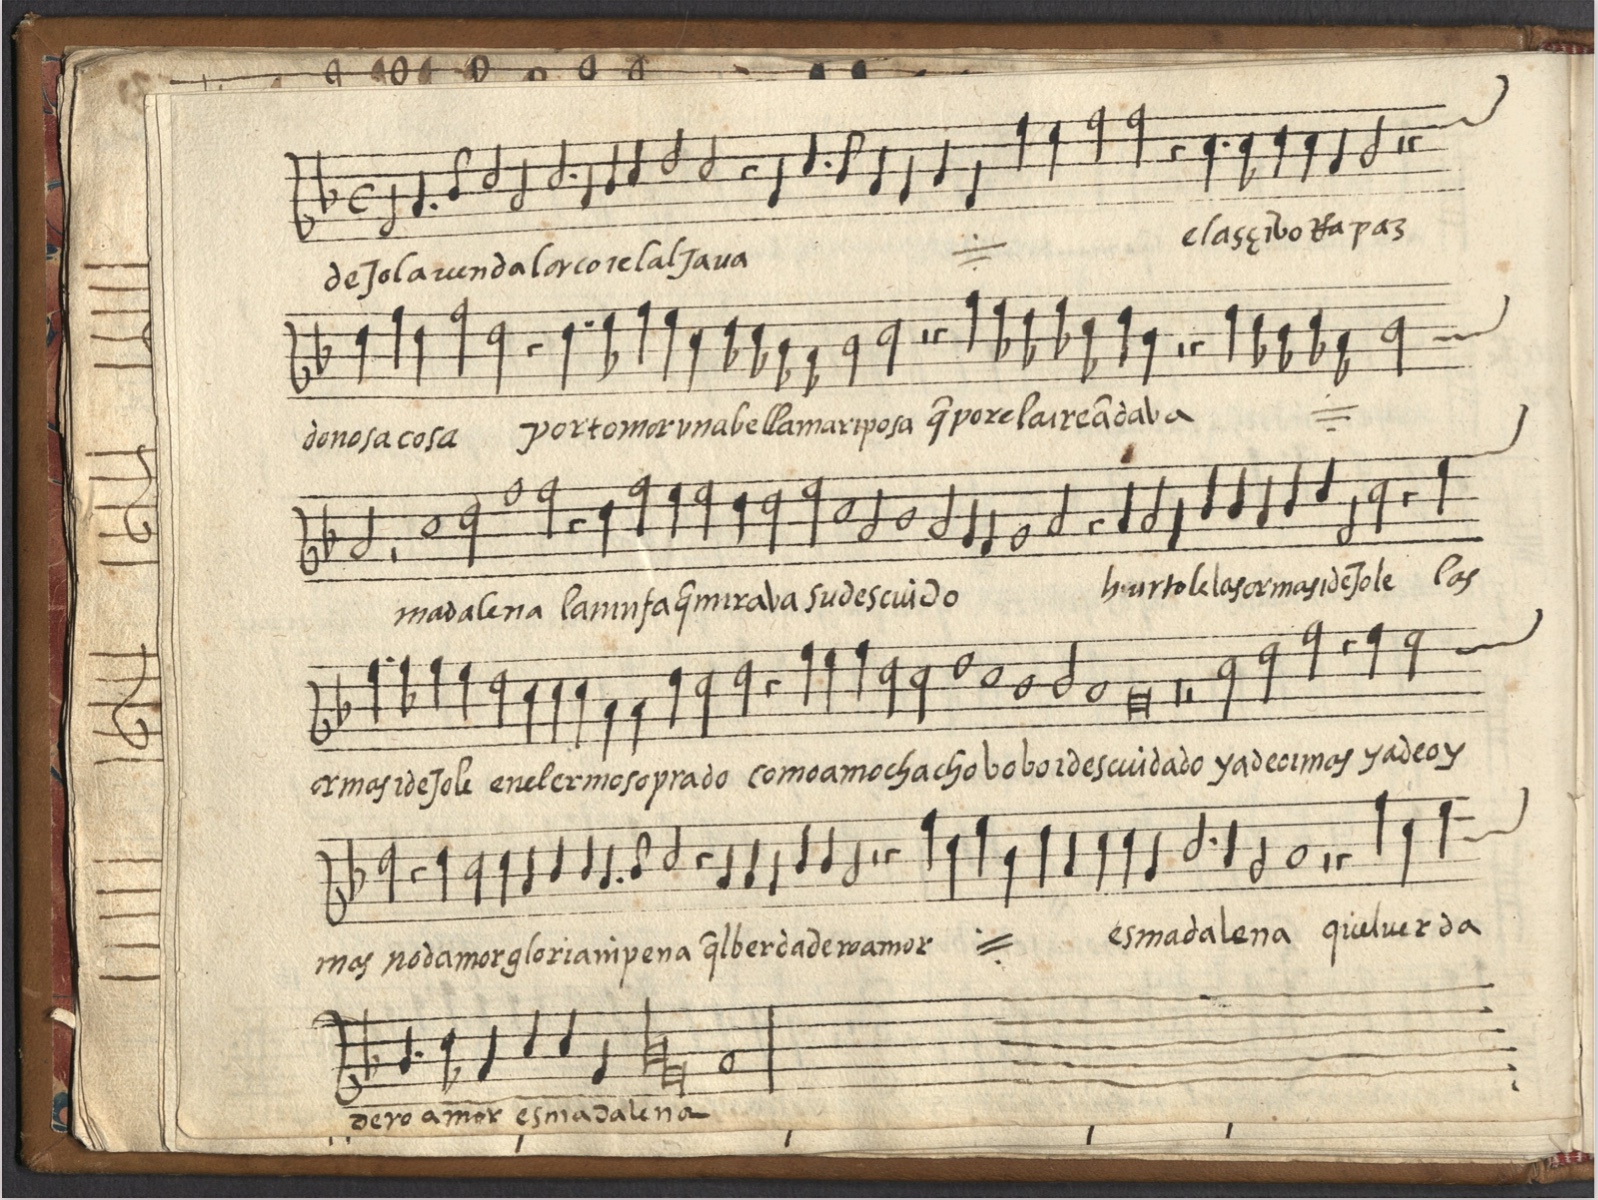 deJola venda l arco i elalJava elasçibo rapaz
donosa cosa por tomar vna bella mariposa q̃ por el aire ãdaba
madalena la ninfa q̃ miraba su descuido hurtole las armas i deJole las
armas i deJole en el ermoso prado como a mochacho bobo i descuidado ya decimos ya de oy
mas no da mor gloria ni pena q̃l berdadero amor es madalena qu el ver da
dero amor es madalena